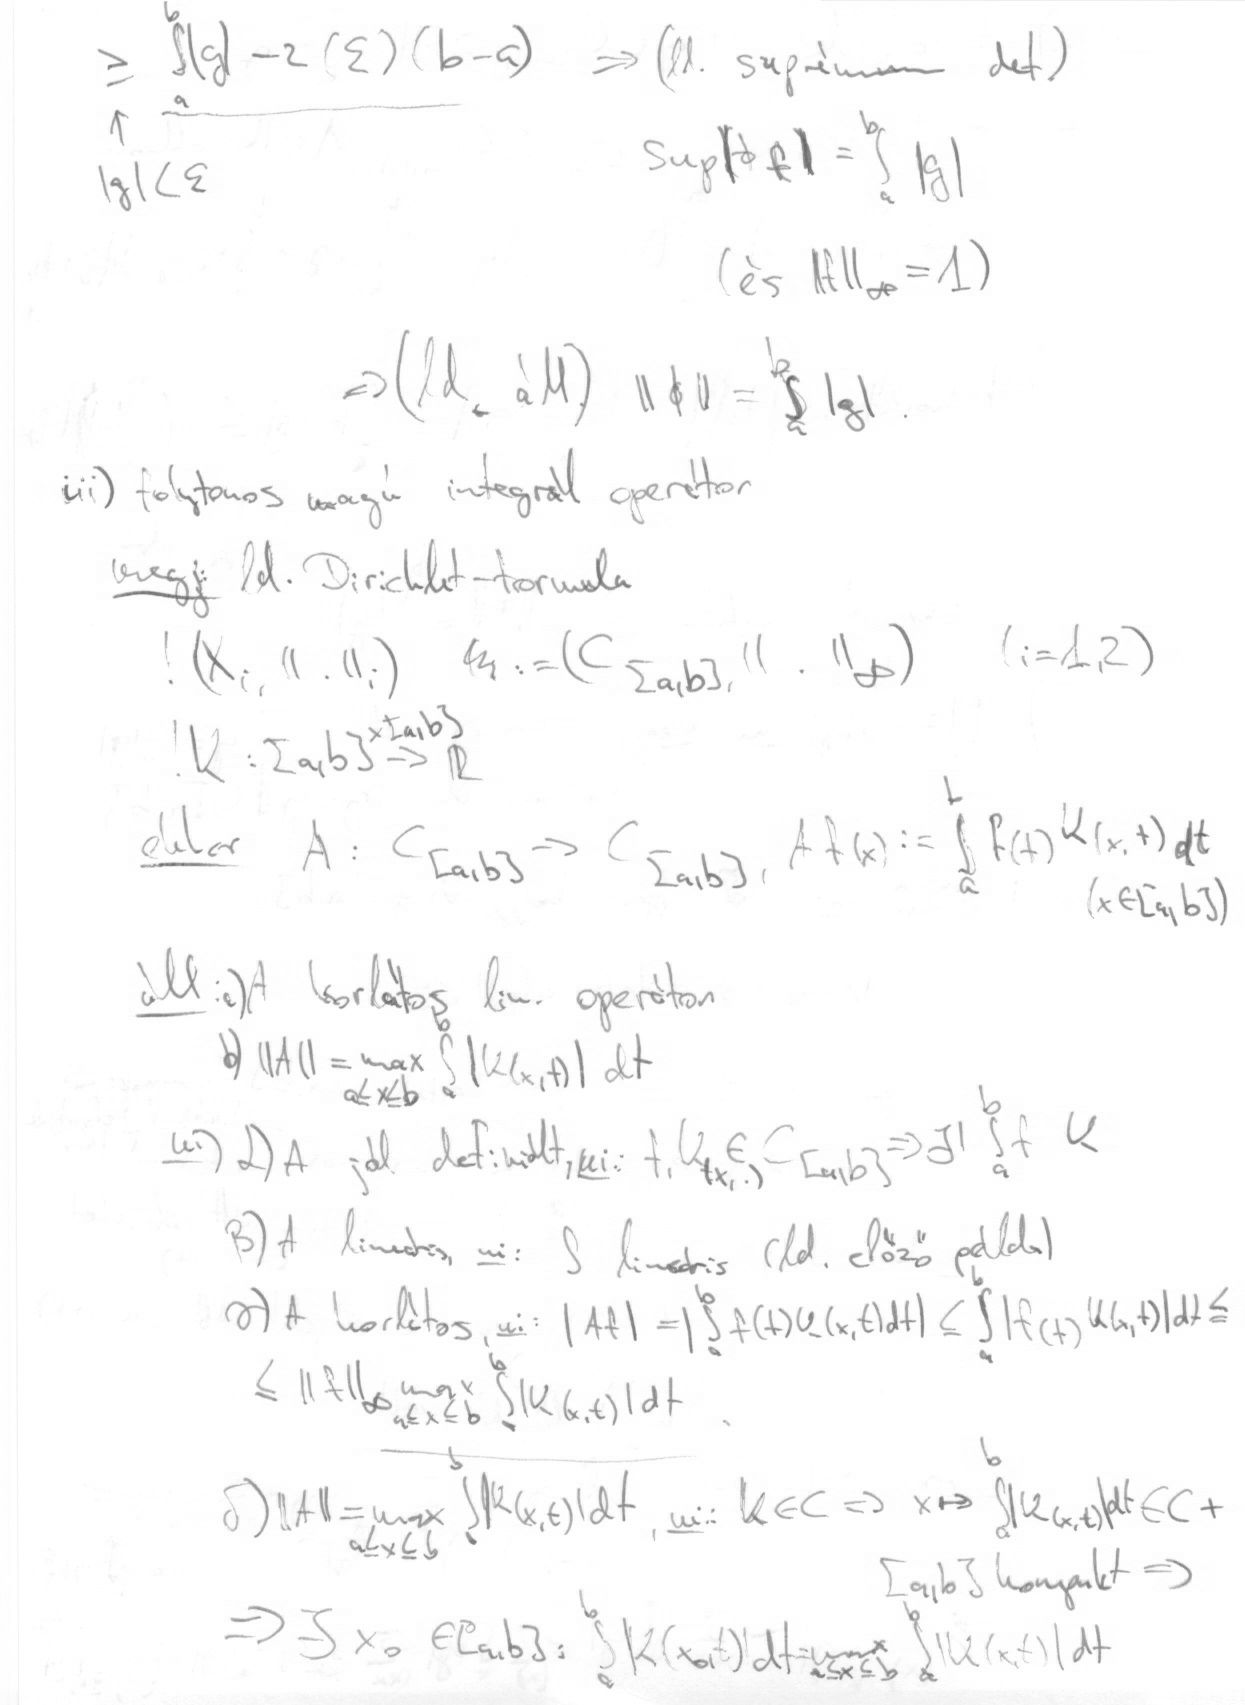 ≥ ∫_a^b |g| − 2 (ε) (b−a) ⇒ (ld. suprémum def)
↑
|g|<ε
sup|ϕ f| = ∫_a^b |g|
(és ‖f‖_∞ = 1)
⇒ (ld. áll) ‖ϕ‖ = ∫_a^b |g|.
iii) folytonos magú integrál operátor
megj: ld. Dirichlet-formula
! (X_i, ‖.‖_i) := (C_[a,b], ‖.‖_∞) (i=1,2)
! K : [a,b]×[a,b] → ℝ
ekkor A : C_[a,b] → C_[a,b], A f(x) := ∫_a^b f(t) K(x,t) dt
(x∈[a,b])
áll: a) A korlátos lin. operátor
b) ‖A‖ = max_{a≤x≤b} ∫_a^b |K(x,t)| dt
ui) α) A jól definiált, ui: f, K(x,.) ∈ C_[a,b] ⇒ ∃! ∫_a^b f K
β) A lineáris, ui: ∫ lineáris (ld. előző példa)
γ) A korlátos, ui: |Af| = |∫_a^b f(t)K(x,t)dt| ≤ ∫_a^b |f(t) K(x,t)|dt ≤
≤ ‖f‖_∞ max_{a≤x≤b} ∫_a^b |K(x,t)|dt.
δ) ‖A‖ = max_{a≤x≤b} ∫_a^b |K(x,t)|dt, ui: K∈C ⇒ x ↦ ∫_a^b |K(x,t)|dt ∈ C +
[a,b] kompakt ⇒
⇒ ∃ x_0 ∈ [a,b]: ∫_a^b |K(x_0,t)|dt = max_{a≤x≤b} ∫_a^b |K(x,t)|dt